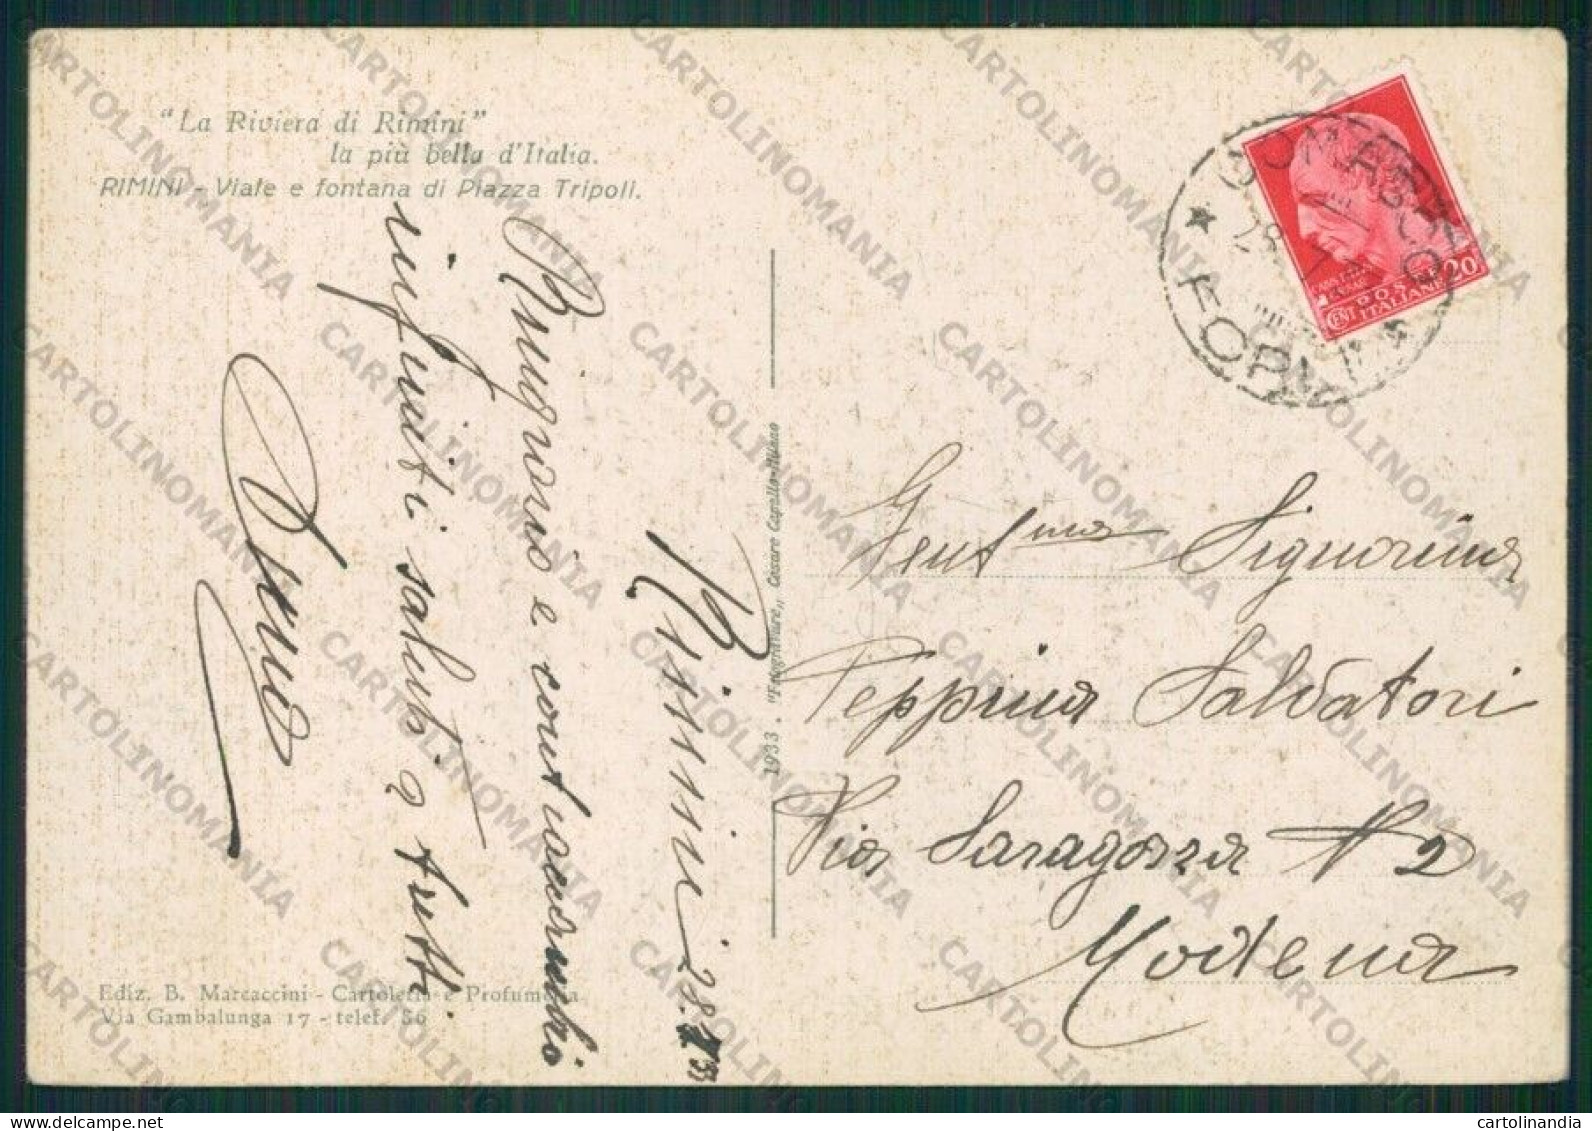 "La Riviera di Rimini"
la più bella d'Italia.
RIMINI - Viale e fontana di Piazza Tripoli.
Rimini 28.
Ringrazio e contraccambio
infiniti saluti a tutti
Ediz. B. Marcaccini - Cartoleria e Profumeria
Via Gambalunga 17 - telef. 56
1933 - "Fotogravure,, Cesare Capello-Milano
SOMABCO
28
FORN
POSTE
ITALIANE
CENT 20
Gent.ma Signorina
Peppina Salvatori
Via Saragozza N 2
Modena
CARTOLINOMANIA
cartolinandia